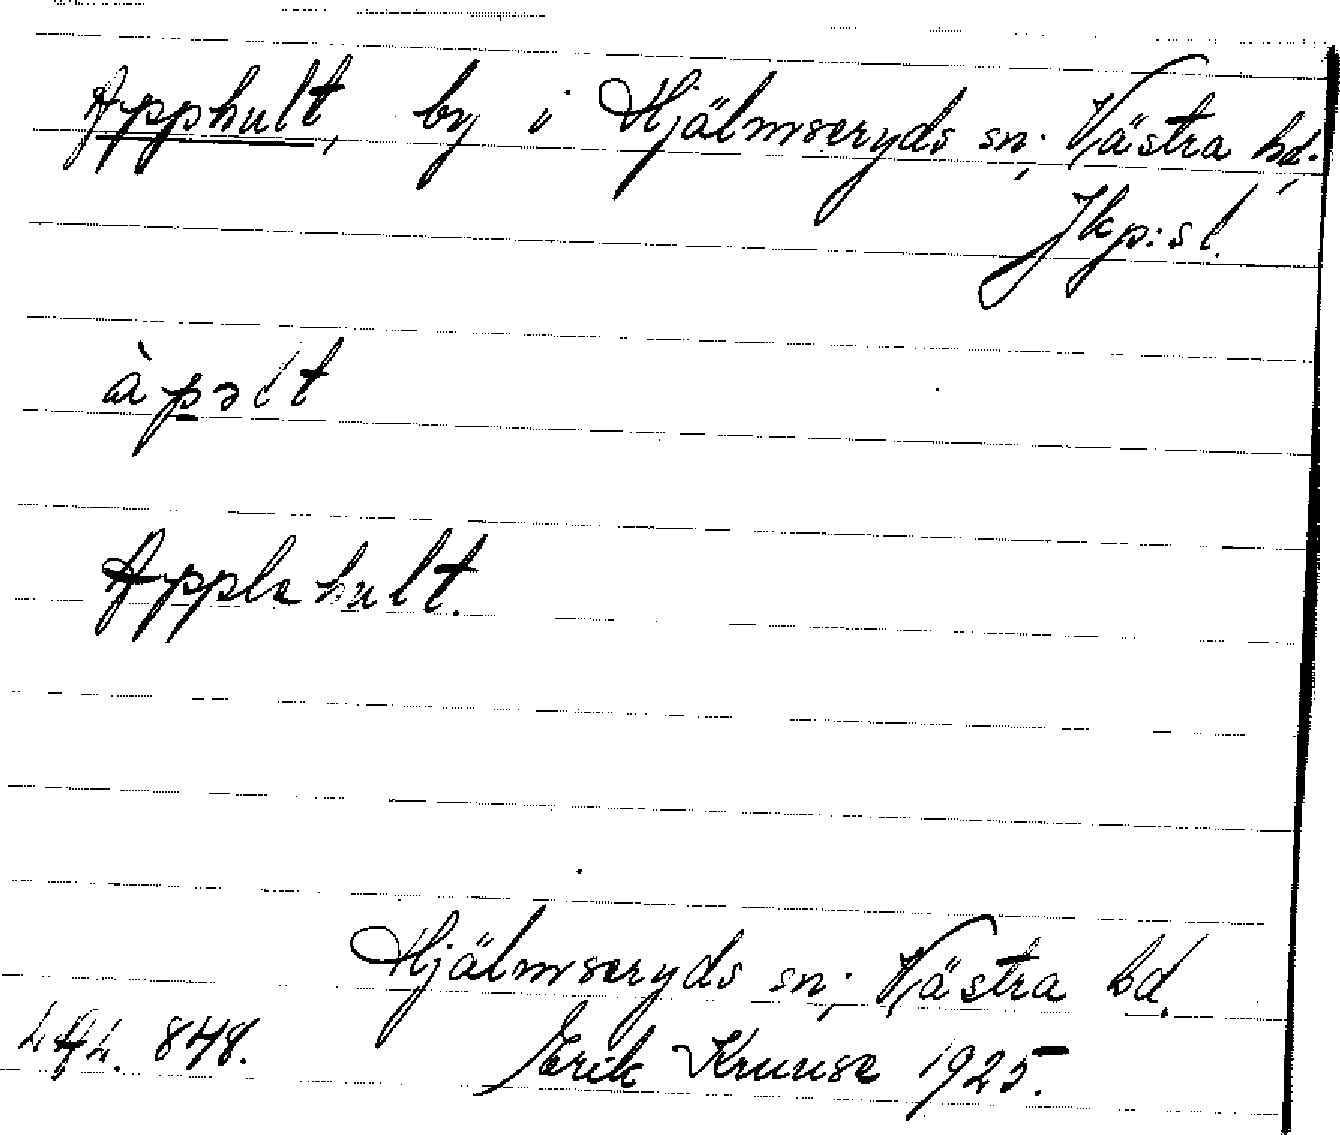 Apphult, by i Hjälmseryds sn; Västra hd.,
Jkp:s l.
àpəlt
Applahult.
Hjälmseryds sn; Västra hd.
848. Erik Kruuse 1925.